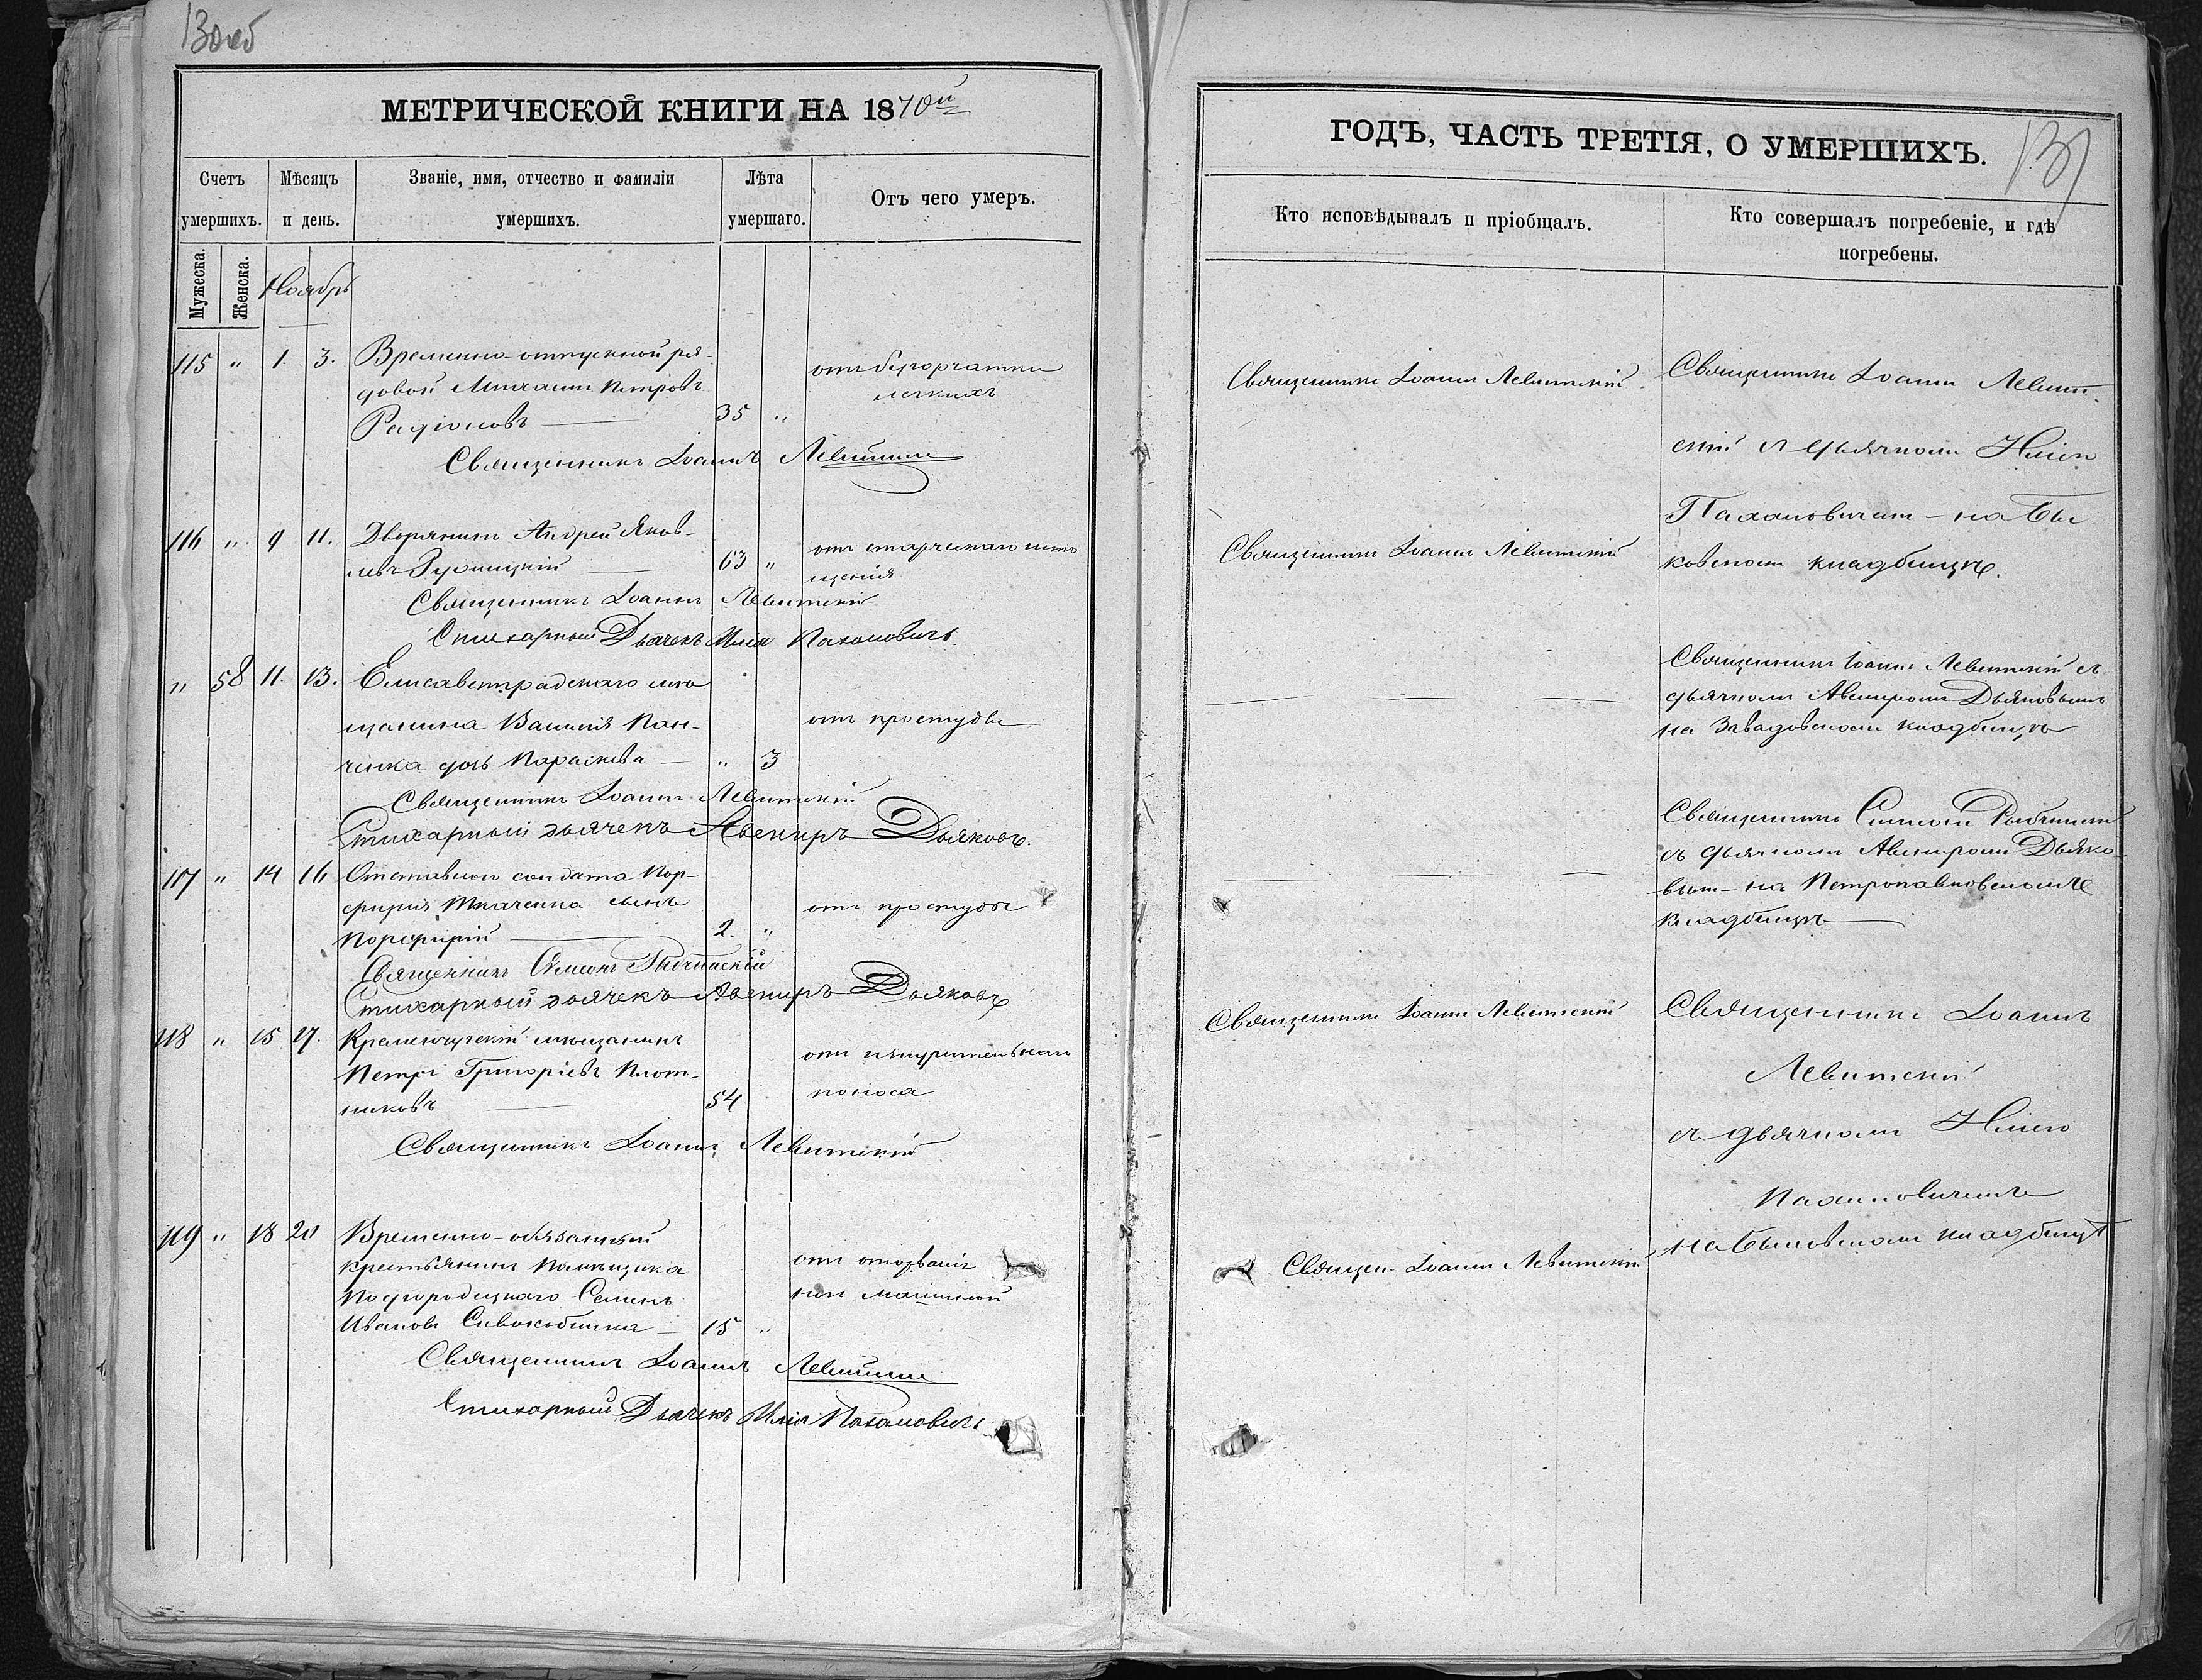 130об
МЕТРИЧЕСКОЙ КНИГИ НА 1870й
Счетъ умершихъ.
Мѣсяцъ и день.
Званіе, имя, отчество и фамиліи умершихъ.
Лѣта умершаго.
Отъ чего умеръ.
Мужеска.
Женска.
Ноябрь
115 " 1. 3. Временно-отпускной ря-
довой Михаилъ Петровъ
Радіоновъ — 35 "
отъ бугорчатки
легкихъ
Священникъ Іоаннъ Левитскій
116 " 9 11. Дворянинъ Андрей Яков-
левъ — 63 "
отъ старческаго исто
щенія
Священникъ Іоаннъ Левитскій
Стихарный Дьячекъ Илія Пахановичъ.
" 58 11. 13. Елисаветградскаго мѣ
щанина Василія Пан-
ченка дочь Параскева — " 3
отъ простуды
Священникъ Іоаннъ Левитскій
Стихарный дьячекъ Авениръ Дьяковъ.
117 " 14 16 Отставного солдата Пор-
фирія Ткаченка сынъ
Порфирій — 2. "
отъ простуды
Священникъ Симеонъ
Стихарный дьячекъ Авениръ Дьяковъ
118 " 15 17. Кременчугскій мѣщанинъ
Петръ Григоріевъ Плот-
никовъ — 54
отъ изнурительнаго
поноса
Священникъ Іоаннъ Левитскій
119 " 18 20 Временно-обязанный
крестьянинъ помѣщика
Подгородецкаго Семенъ
Ивановъ Сивокобилка — 15 "
отъ оторванія
ноги машиной
Священникъ Іоаннъ Левитскій
Стихарный Дьячекъ Илія Пахановичъ
ГОДЪ, ЧАСТЬ ТРЕТІЯ, О УМЕРШИХЪ.
131
Кто исповѣдывалъ и пріобщалъ.
Кто совершалъ погребеніе, и гдѣ
погребены.
Священникъ Іоаннъ Левитскій.
Священникъ Іоаннъ Левит-
скій съ дьячкомъ Иліею
Пахановичемъ — на Бы
ковскомъ кладбищѣ.
Священникъ Іоаннъ Левитскій
Священникъ Іоаннъ Левитскій съ
дьячкомъ Авениромъ Дьяковымъ
на Завадовскомъ кладбищѣ
Священникъ Симеонъ
съ дьячкомъ Авениромъ Дьяко-
вымъ — на Петропавловскомъ
кладбищѣ —
Священникъ Іоаннъ Левитскій
Священникъ Іоаннъ
Левитскій
съ дьячкомъ Иліею
Пахановичемъ
на Быковскомъ кладбищѣ
Священ. Іоаннъ Левитскій